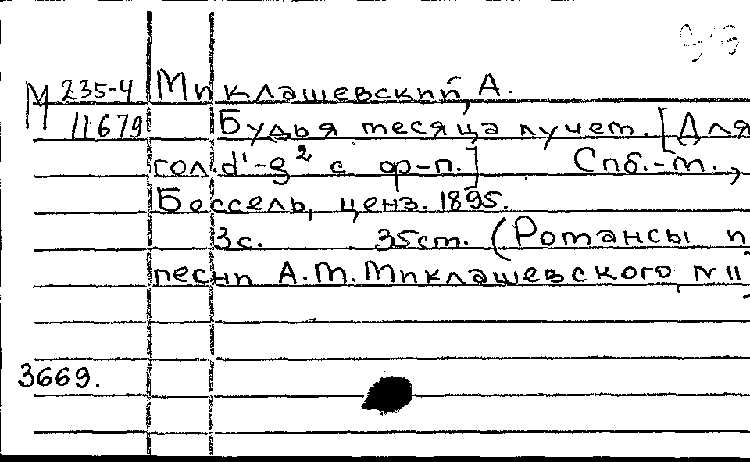 М 235-4 Миклашевский, А.
11679 Будь я месяца лучем. [Для
гол. d¹-g² с ф-п.] Спб.-М.,
Бессель, ценз. 1895.
3с. 35см. (Романсы и
песни А.М.Миклашевского, № 11)
3669.